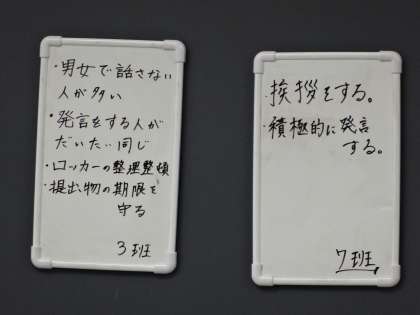 ・男女で話さない
人が多い
・発言をする人が
だいたい同じ
・ロッカーの整理整頓
・提出物の期限を
守る
3班
挨拶をする。
・積極的に発言
する。
7班